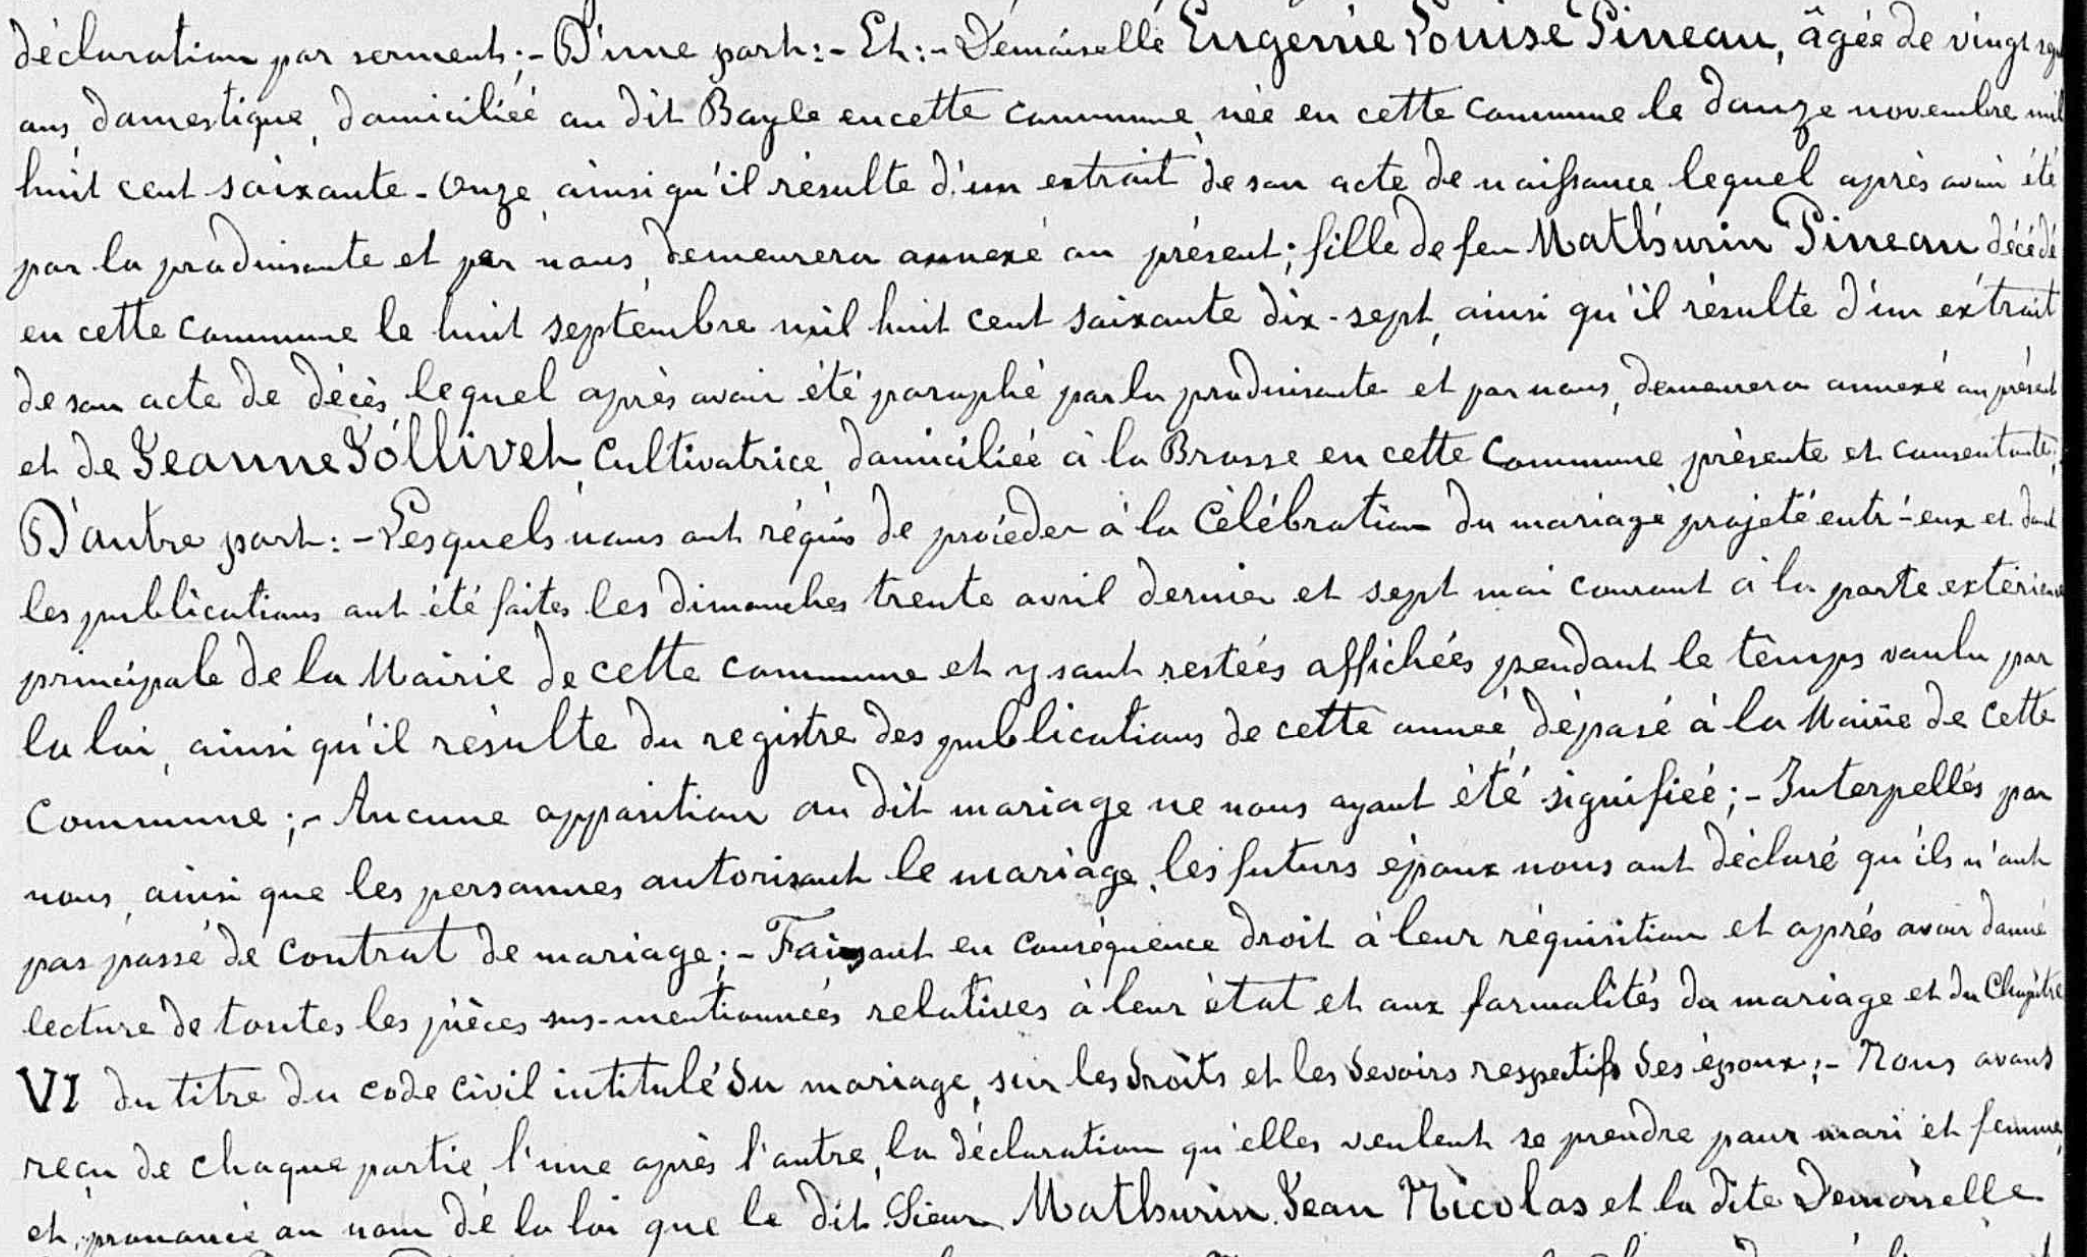 déclaration par serment ;- D'une part :- Et :- Demoiselle Eugénie Louise Pineau, âgée de vingt sept
ans, domestique, domiciliée au dit Bayle en cette commune, née en cette commune le douze novembre mil
huit cent soixante-onze, ainsi qu'il résulte d'un extrait de son acte de naissance lequel après avoir été
par la produisante et par nous, demeurera annexé au présent ; fille de feu Mathurin Pineau décédé
en cette commune le huit septembre mil huit cent soixante dix-sept, ainsi qu'il résulte d'un extrait
de son acte de décès, lequel après avoir été paraphé par la produisante et par nous, demeurera annexé au présent
et de Jeanne Jollivet, Cultivatrice, domiciliée à la Brosse en cette Commune présente et consentante ;
D'autre part :- Lesquels nous ont réquis de procéder à la Célébration du mariage projeté entr'-eux et dont
les publications ont été faites les dimanches trente avril dernier et sept mai courant à la porte extérieure
principale de la Mairie de cette commune et y sont restées affichées pendant le temps voulu par
la loi, ainsi qu'il résulte du registre des publications de cette année, déposé à la Mairie de cette
Commune ;- Aucune opposition au dit mariage ne nous ayant été signifiée ;- Interpellés par
nous, ainsi que les personnes autorisant le mariage, les futurs époux nous ont déclaré qu'ils n'ont
pas passé de contrat de mariage ;- Faisant en conséquence droit à leur réquisition et après avoir donné
lecture de toutes les pièces sus-mentionnées relatives à leur état et aux formalités du mariage et du Chapitre
VI du titre du code civil intitulé du mariage, sur les droits et les devoirs respectifs des époux ;- Nous avons
reçu de chaque partie, l'une après l'autre, la déclaration qu'elles veulent se prendre pour mari et femme,
et, prononcé au nom de la loi que le dit Sieur Mathurin Jean Nicolas et la dite Demoiselle